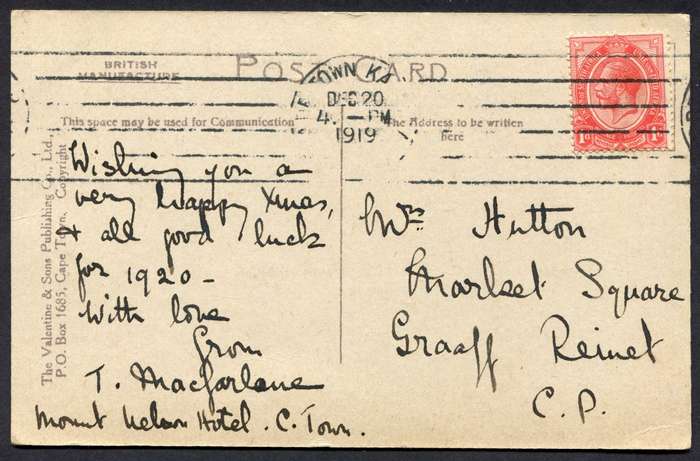 BRITISH
MANUFACTURE
POST CARD
TOWN K
DEC 20
4. — PM
1919
1d 1d
This space may be used for Communication
The Address to be written
here
Wishing you a
very happy Xmas,
& all good luck
for 1920 –
With love
from
T. Macfarlane
Mount Nelson Hotel. C. Town.
Mrs Hutton
Market Square
Graaff Reinet
C. P.
The Valentine & Sons Publishing Co., Ltd.,
P.O. Box 1685, Cape Town. Copyright